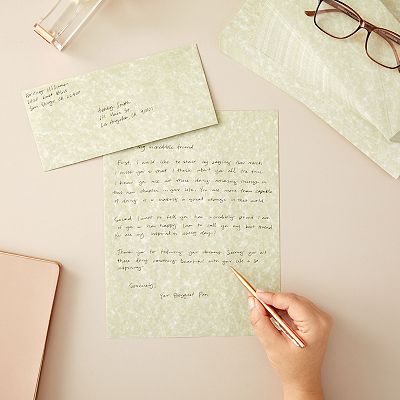 Brittney Williamson
2025 East Blvd
San Diego, CA 22400
Ashley Smith
111 Main St
Los Angeles, CA
my incredible friend
First, I would like to start by saying how much
I love you & that I think about you all the time.
I know you are out there doing amazing things in
this new chapter in your life. You are more than capable
of doing is & making a great change in this world.
Second, I want to tell you how incredibly proud I am
of you & how happy I am to call you my best friend.
You are my inspiration every day!
Thank you for following your dreams. Seeing you all
there doing something beautiful with your life is so
inspiring.
Sincerely,
Your Biggest Fan